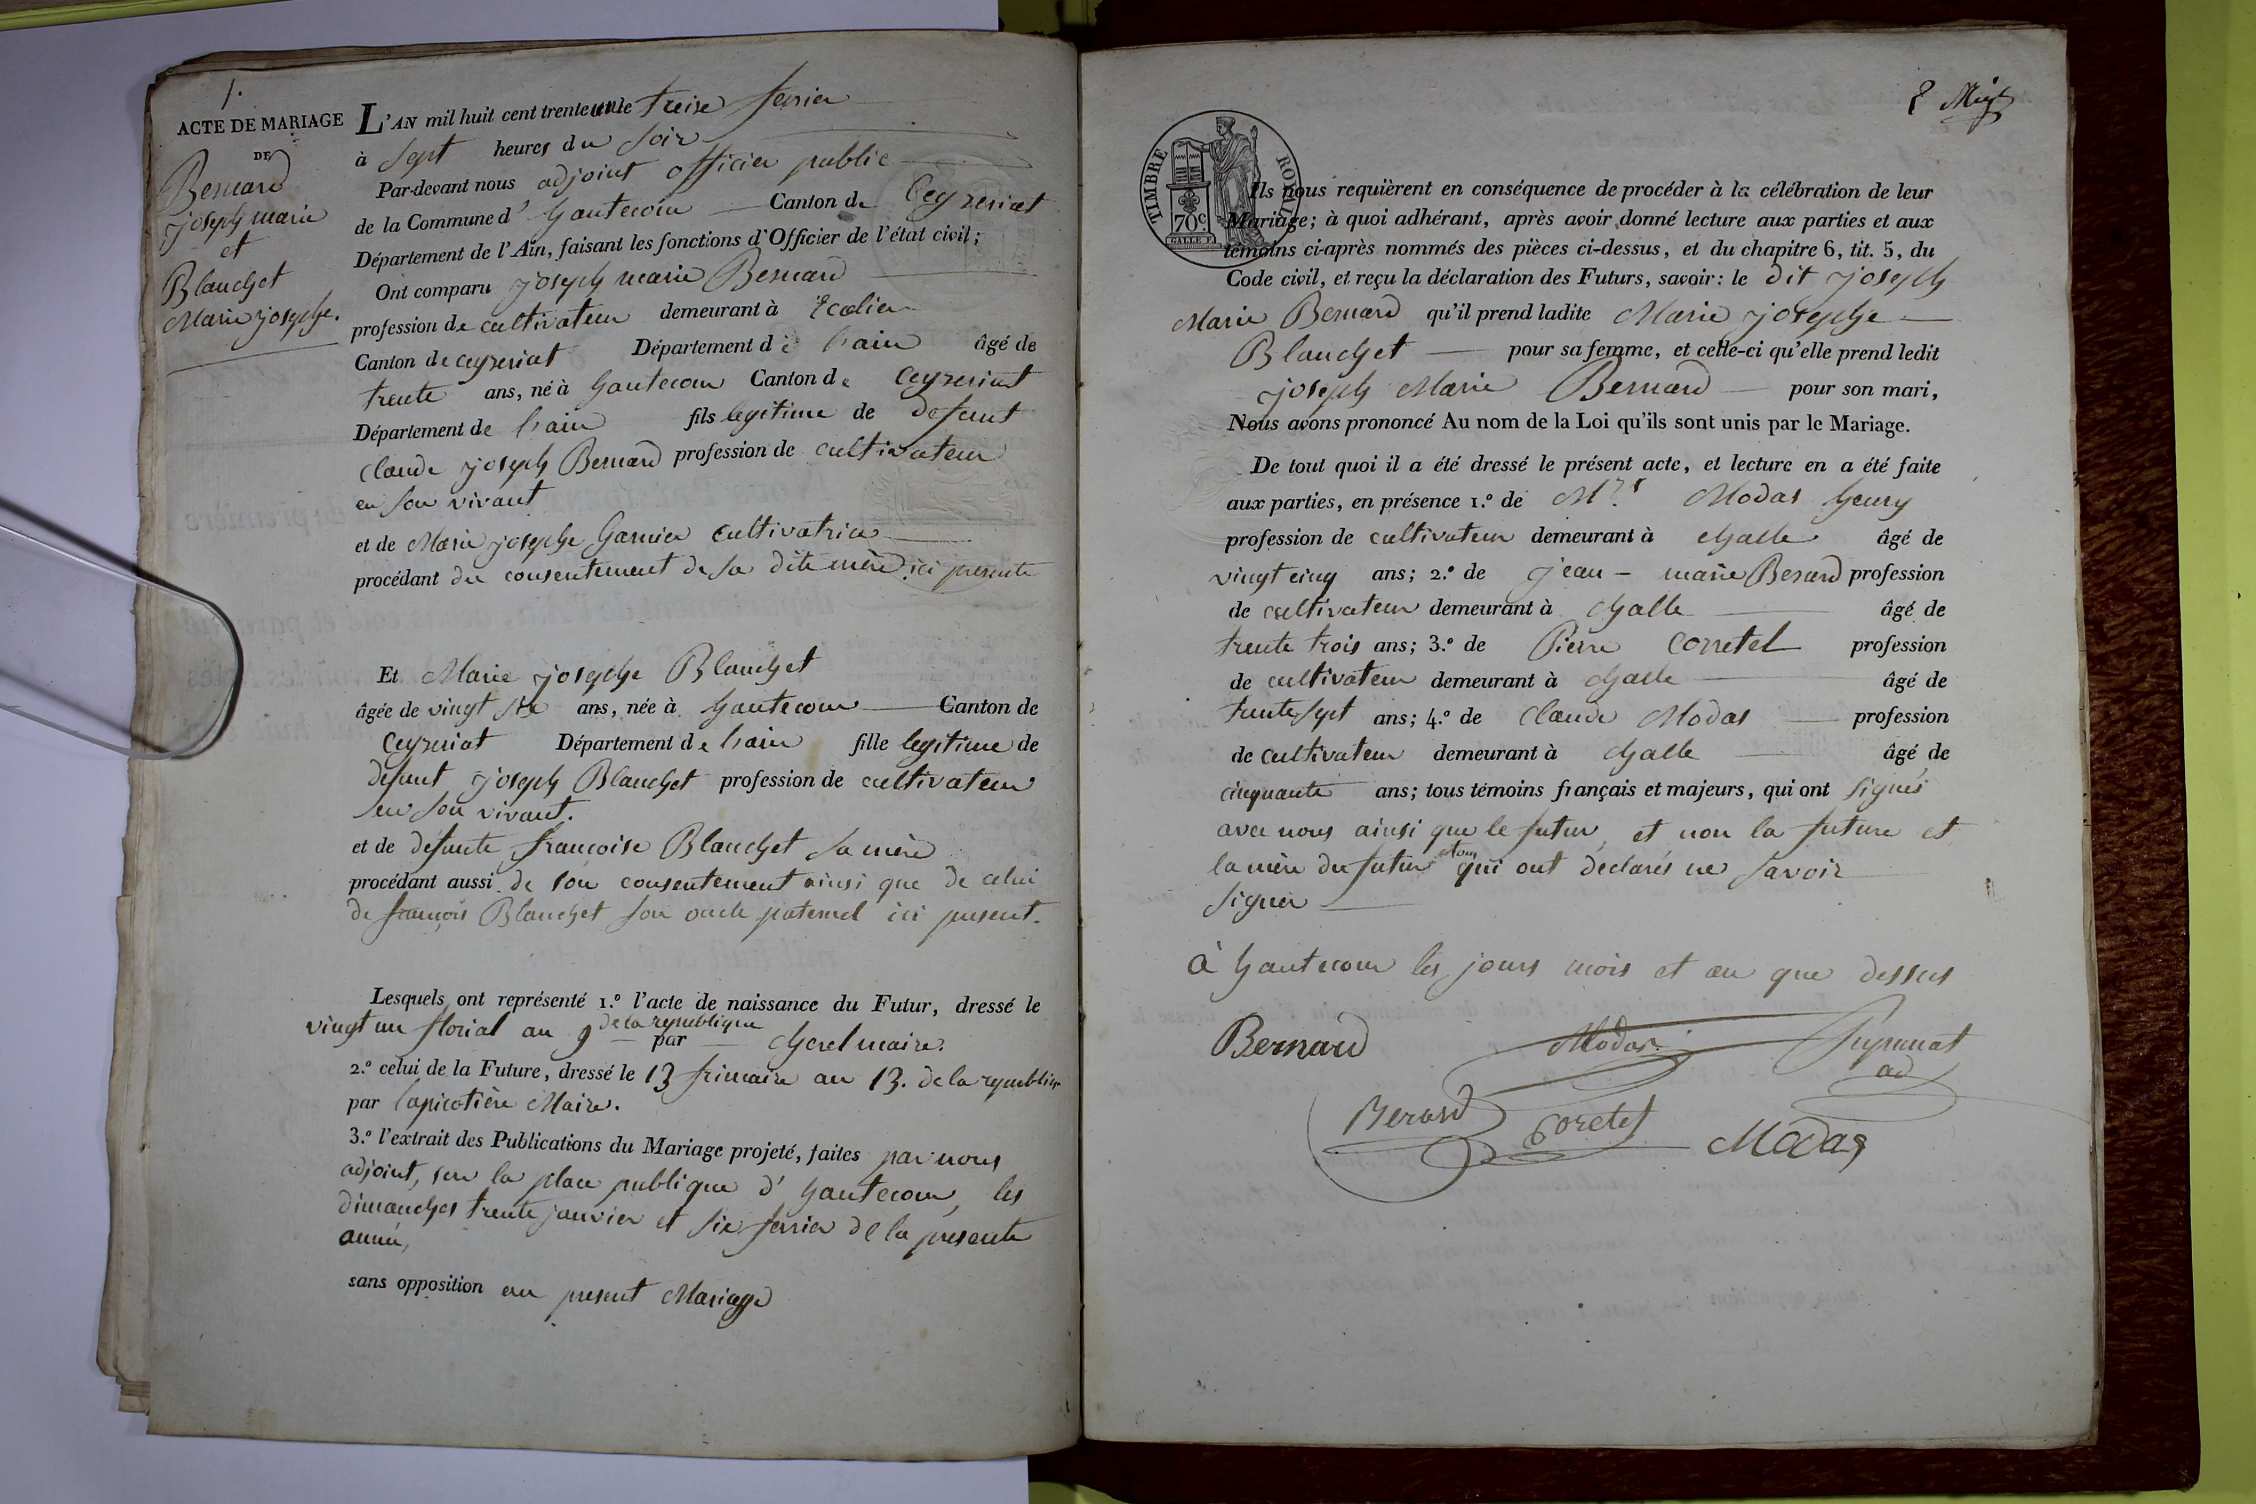 1.
ACTE DE MARIAGE
DE
Bernard
joseph marie
et
Blanchet
Marie josephe.
L'AN mil huit cent trente un le treise fevrier
à sept heures du soir
Par-devant nous adjoint officier public
de la Commune d' hautecour Canton de Ceyzeriat
Département de l'Ain, faisant les fonctions d'Officier de l'état civil;
Ont comparu joseph marie Bernard
profession de cultivateur demeurant à
Canton de ceyzeriat Département de l'ain âgé de
trente ans, né à hautecour Canton de Ceyzeriat
Département de l'ain fils legitime de defunt
Claude joseph Bernard profession de cultivateur
en son vivant
et de Marie josephe Garnier Cultivatrice
procédant du consentement de sa dite mère ici presente
Et Marie josephe Blanchet
âgée de vingt six ans, née à hautecour Canton de
Ceyzeriat Département de l'ain fille legitime de
defunt joseph Blanchet profession de cultivateur
en son vivant.
et de defunte françoise Blanchet sa mère
procédant aussi de son consentement ainsi que de celui
de françois Blanchet son oncle paternel ici present.
Lesquels ont représenté 1.º l'acte de naissance du Futur, dressé le
vingt un florial an 9 de la republique par Cherel maire.
2.º celui de la Future, dressé le 13 frimaire an 13. de la republiq
par lapicotière Maire.
3.º l'extrait des Publications du Mariage projeté, faites par nous
adjoint, sur la place publique d' hautecour, les
dimanches trente janvier et six fevrier de la presente
année,
sans opposition au present Mariage
TIMBRE ROYAL
70 c.
Ils nous requièrent en conséquence de procéder à la célébration de leur
Mariage; à quoi adhérant, après avoir donné lecture aux parties et aux
témoins ci-après nommés des pièces ci-dessus, et du chapitre 6, tit. 5, du
Code civil, et reçu la déclaration des Futurs, savoir: le dit joseph
Marie Bernard qu'il prend ladite Marie josephe
Blanchet pour sa femme, et celle-ci qu'elle prend ledit
joseph Marie Bernard pour son mari,
Nous avons prononcé Au nom de la Loi qu'ils sont unis par le Mariage.
De tout quoi il a été dressé le présent acte, et lecture en a été faite
aux parties, en présence 1.º de Mrs Modas henry
profession de cultivateur demeurant à challe âgé de
vingt cinq ans; 2.º de jean - marie Berard profession
de cultivateur demeurant à challe âgé de
trente trois ans; 3.º de Pierre Corretel profession
de cultivateur demeurant à challe âgé de
trente sept ans; 4.º de Claude Modas profession
de cultivateur demeurant à challe âgé de
cinquante ans; tous témoins français et majeurs, qui ont signés
avec nous ainsi que le futur, et non la future et
la mère du futur qui ont déclarés ne savoir
signer
à hautecour les jours mois et an que dessus
Bernard Modas
ad
Berard Coretel Modas